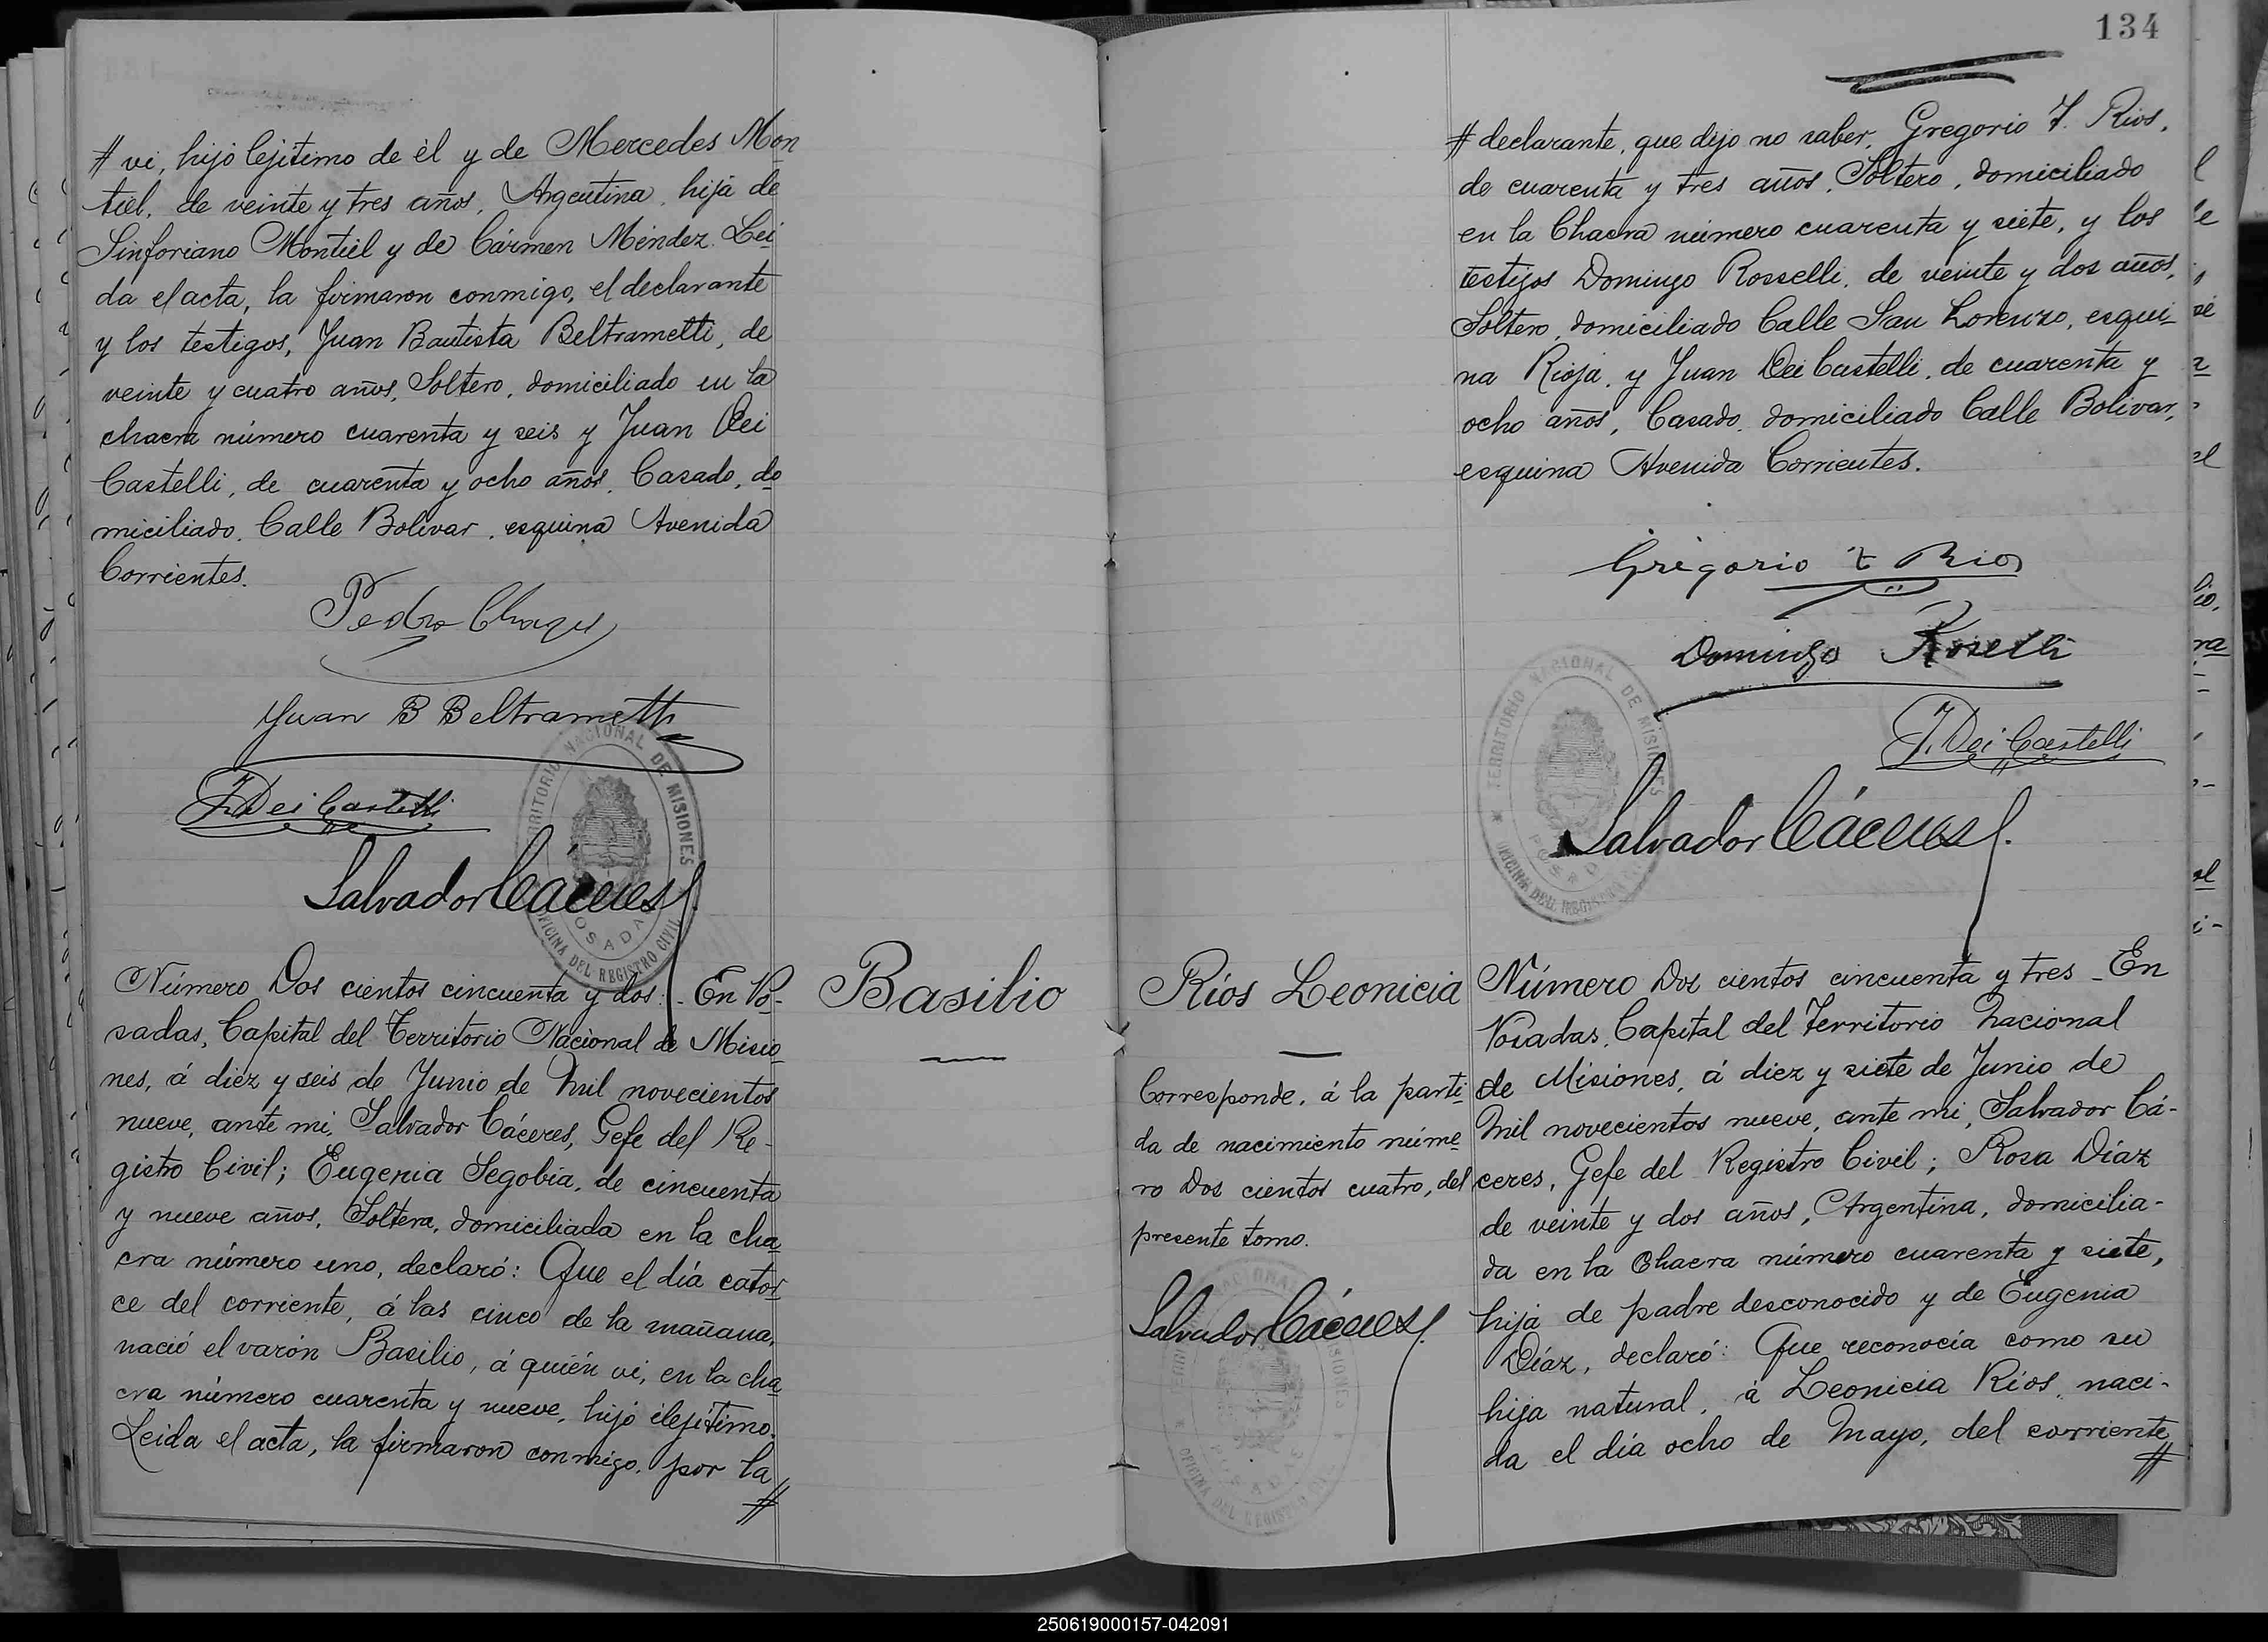 # vi, hijo lejitimo de él y de Mercedes Mon
tiel, de veinte y tres años, Argentina, hija de
Sinforiano Montiel y de Cármen Méndez. Lei
da el acta, la firmaron conmigo, el declarante
y los testigos, Juan Bautista Beltrametti, de
veinte y cuatro años, Soltero, domiciliado en la
chacra número cuarenta y seis y Juan Dei
Castelli, de cuarenta y ocho años, Casado, do
miciliado, Calle Bolivar, esquina Avenida
Corrientes.
Pedro
Juan B Beltrametti
J. Dei Castelli
Salvador Cáceres
TERRITORIO NACIONAL DE MISIONES
POSADAS
OFICINA DEL REGISTRO CIVIL
Número Dos cientos cincuenta y dos:- En Po-
sadas, Capital del Territorio Nacional de Misio
nes, á diez y seis de Junio de Mil novecientos
nueve, ante mi, Salvador Cáceres, Gefe del Re-
gistro Civil; Eugenia Segobia, de cincuenta
y nueve años, Soltera, domiciliada en la cha
cra número uno, declaró: Que el día cator
ce del corriente, á las cinco de la mañana,
nació el varón Basilio, á quién vi, en la cha
cra número cuarenta y nueve, hijo ilejítimo.
Leida el acta, la firmaron conmigo, por la
#
Basilio
134
# declarante, que dijo no saber, Gregorio F. Rios,
de cuarenta y tres años, Soltero, domiciliado
en la Chacra número cuarenta y siete, y los
testigos Domingo Rosselli, de veinte y dos años,
Soltero, domiciliado Calle San Lorenzo, esqui-
na Rioja, y Juan Dei Castelli, de cuarenta y
ocho años, Casado, domiciliado Calle Bolivar,
esquina Avenida Corrientes.
Gregorio F Rios
Domingo Roselli
J. Dei Castelli
Salvador Cáceres
TERRITORIO NACIONAL DE MISIONES
POSADAS
OFICINA DEL REGISTRO
Ríos Leonicia
Corresponde, á la parti
da de nacimiento núme
ro Dos cientos cuatro, del
presente tomo.
Salvador Cáceres
Número Dos cientos cincuenta y tres - En
Posadas, Capital del Territorio Nacional
de Misiones, á diez y siete de Junio de
Mil novecientos nueve, ante mi, Salvador Cá-
ceres, Gefe del Registro Civil; Rosa Díaz
de veinte y dos años, Argentina, domicilia-
da en la Chacra número cuarenta y siete,
hija de padre desconocido y de Eugenia
Díaz, declaró: Que reconocía como su
hija natural, á Leonicia Ríos, naci-
da el día ocho de Mayo, del corriente
#
250619000157-042091